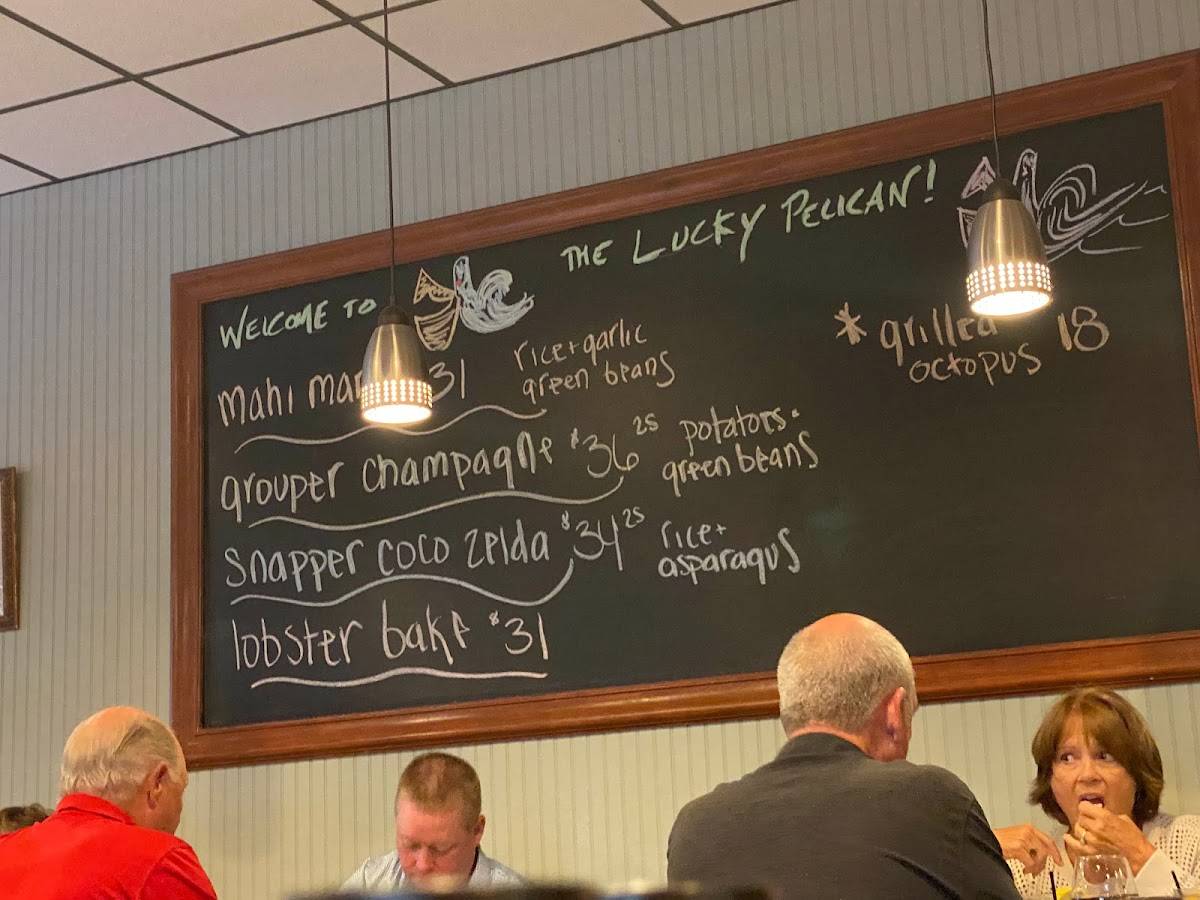 WELCOME TO THE LUCKY PELICAN!
mahi 31 rice + garlic
green beans
grouper champagne $36 25 potatoes -
green beans
snapper coco zelda $34 25 rice +
asparagus
lobster bake $31
* grilled 18
octopus